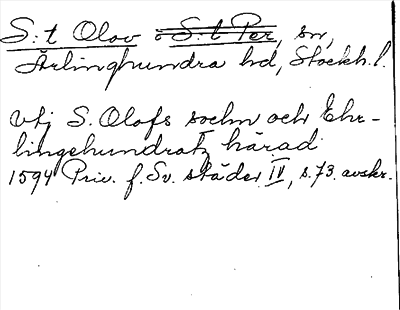 S:t Olov o S:t Per, sn,
Ärlinghundra hd, Stockh. l.
vtj S. Olofs sochn och Ehr-
lingehundratz härad
1594 Priv. f. Sv. städer IV, s. 73. avskr.